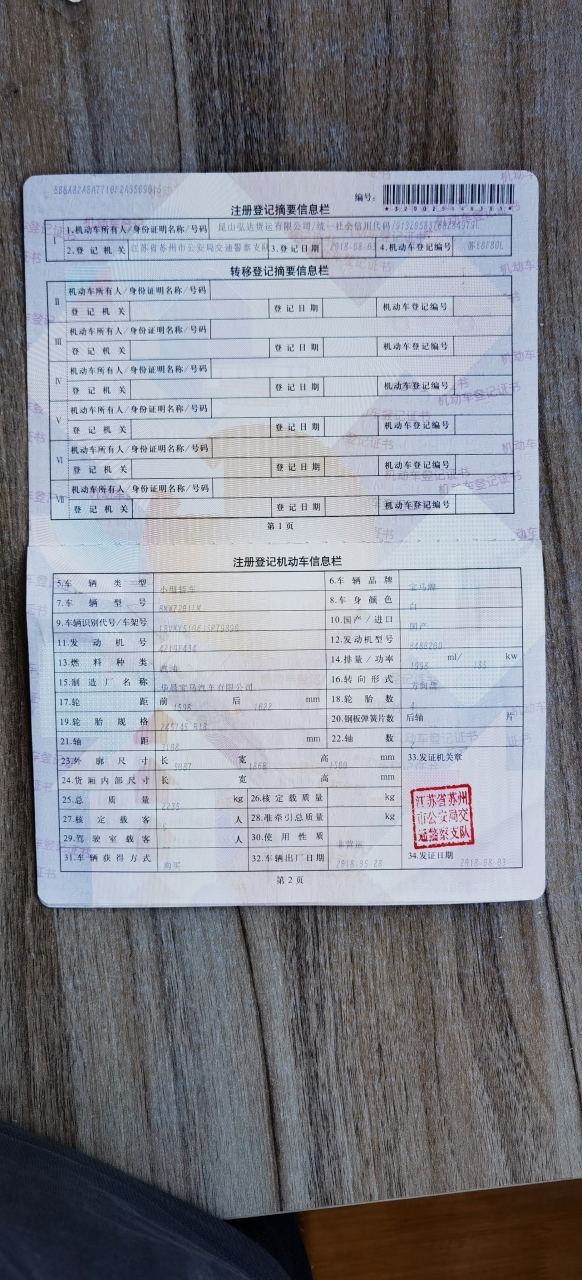 编号:
注册登记摘要信息栏
I 1.机动车所有人/身份证明名称/号码 昆山弘达货运有限公司/统一社会信用代码/
2.登记机关 江苏省苏州市公安局交通警察支队 3.登记日期 2018-08-03 4.机动车登记编号
转移登记摘要信息栏
II 机动车所有人/身份证明名称/号码
登记机关 登记日期 机动车登记编号
III 机动车所有人/身份证明名称/号码
登记机关 登记日期 机动车登记编号
IV 机动车所有人/身份证明名称/号码
登记机关 登记日期 机动车登记编号
V 机动车所有人/身份证明名称/号码
登记机关 登记日期 机动车登记编号
VI 机动车所有人/身份证明名称/号码
登记机关 登记日期 机动车登记编号
VII 机动车所有人/身份证明名称/号码
登记机关 登记日期 机动车登记编号
第1页
注册登记机动车信息栏
5.车辆类型 小型轿车 6.车辆品牌 宝马牌
7.车辆型号 8.车身颜色 白
9.车辆识别代号/车架号 10.国产/进口 国产
11.发动机号 12.发动机型号
13.燃料种类 汽油 14.排量/功率 1998 ml/ 185 kw
15.制造厂名称 华晨宝马汽车有限公司 16.转向形式 方向盘
17.轮距 前 1598 后 1622 mm 18.轮胎数 4
19.轮胎规格 20.钢板弹簧片数 后轴 片
21.轴距 3108 mm 22.轴数 2
23.外廓尺寸 长 5087 宽 1868 高 1500 mm 33.发证机关章
24.货厢内部尺寸 长 宽 高 mm
25.总质量 kg 26.核定载质量 kg
27.核定载客 5 人 28.准牵引总质量 kg
29.驾驶室载客 人 30.使用性质 非营运
31.车辆获得方式 购买 32.车辆出厂日期 2018-05-28 34.发证日期 2018-08-03
江苏省苏州
市公安局交
通警察支队
第2页